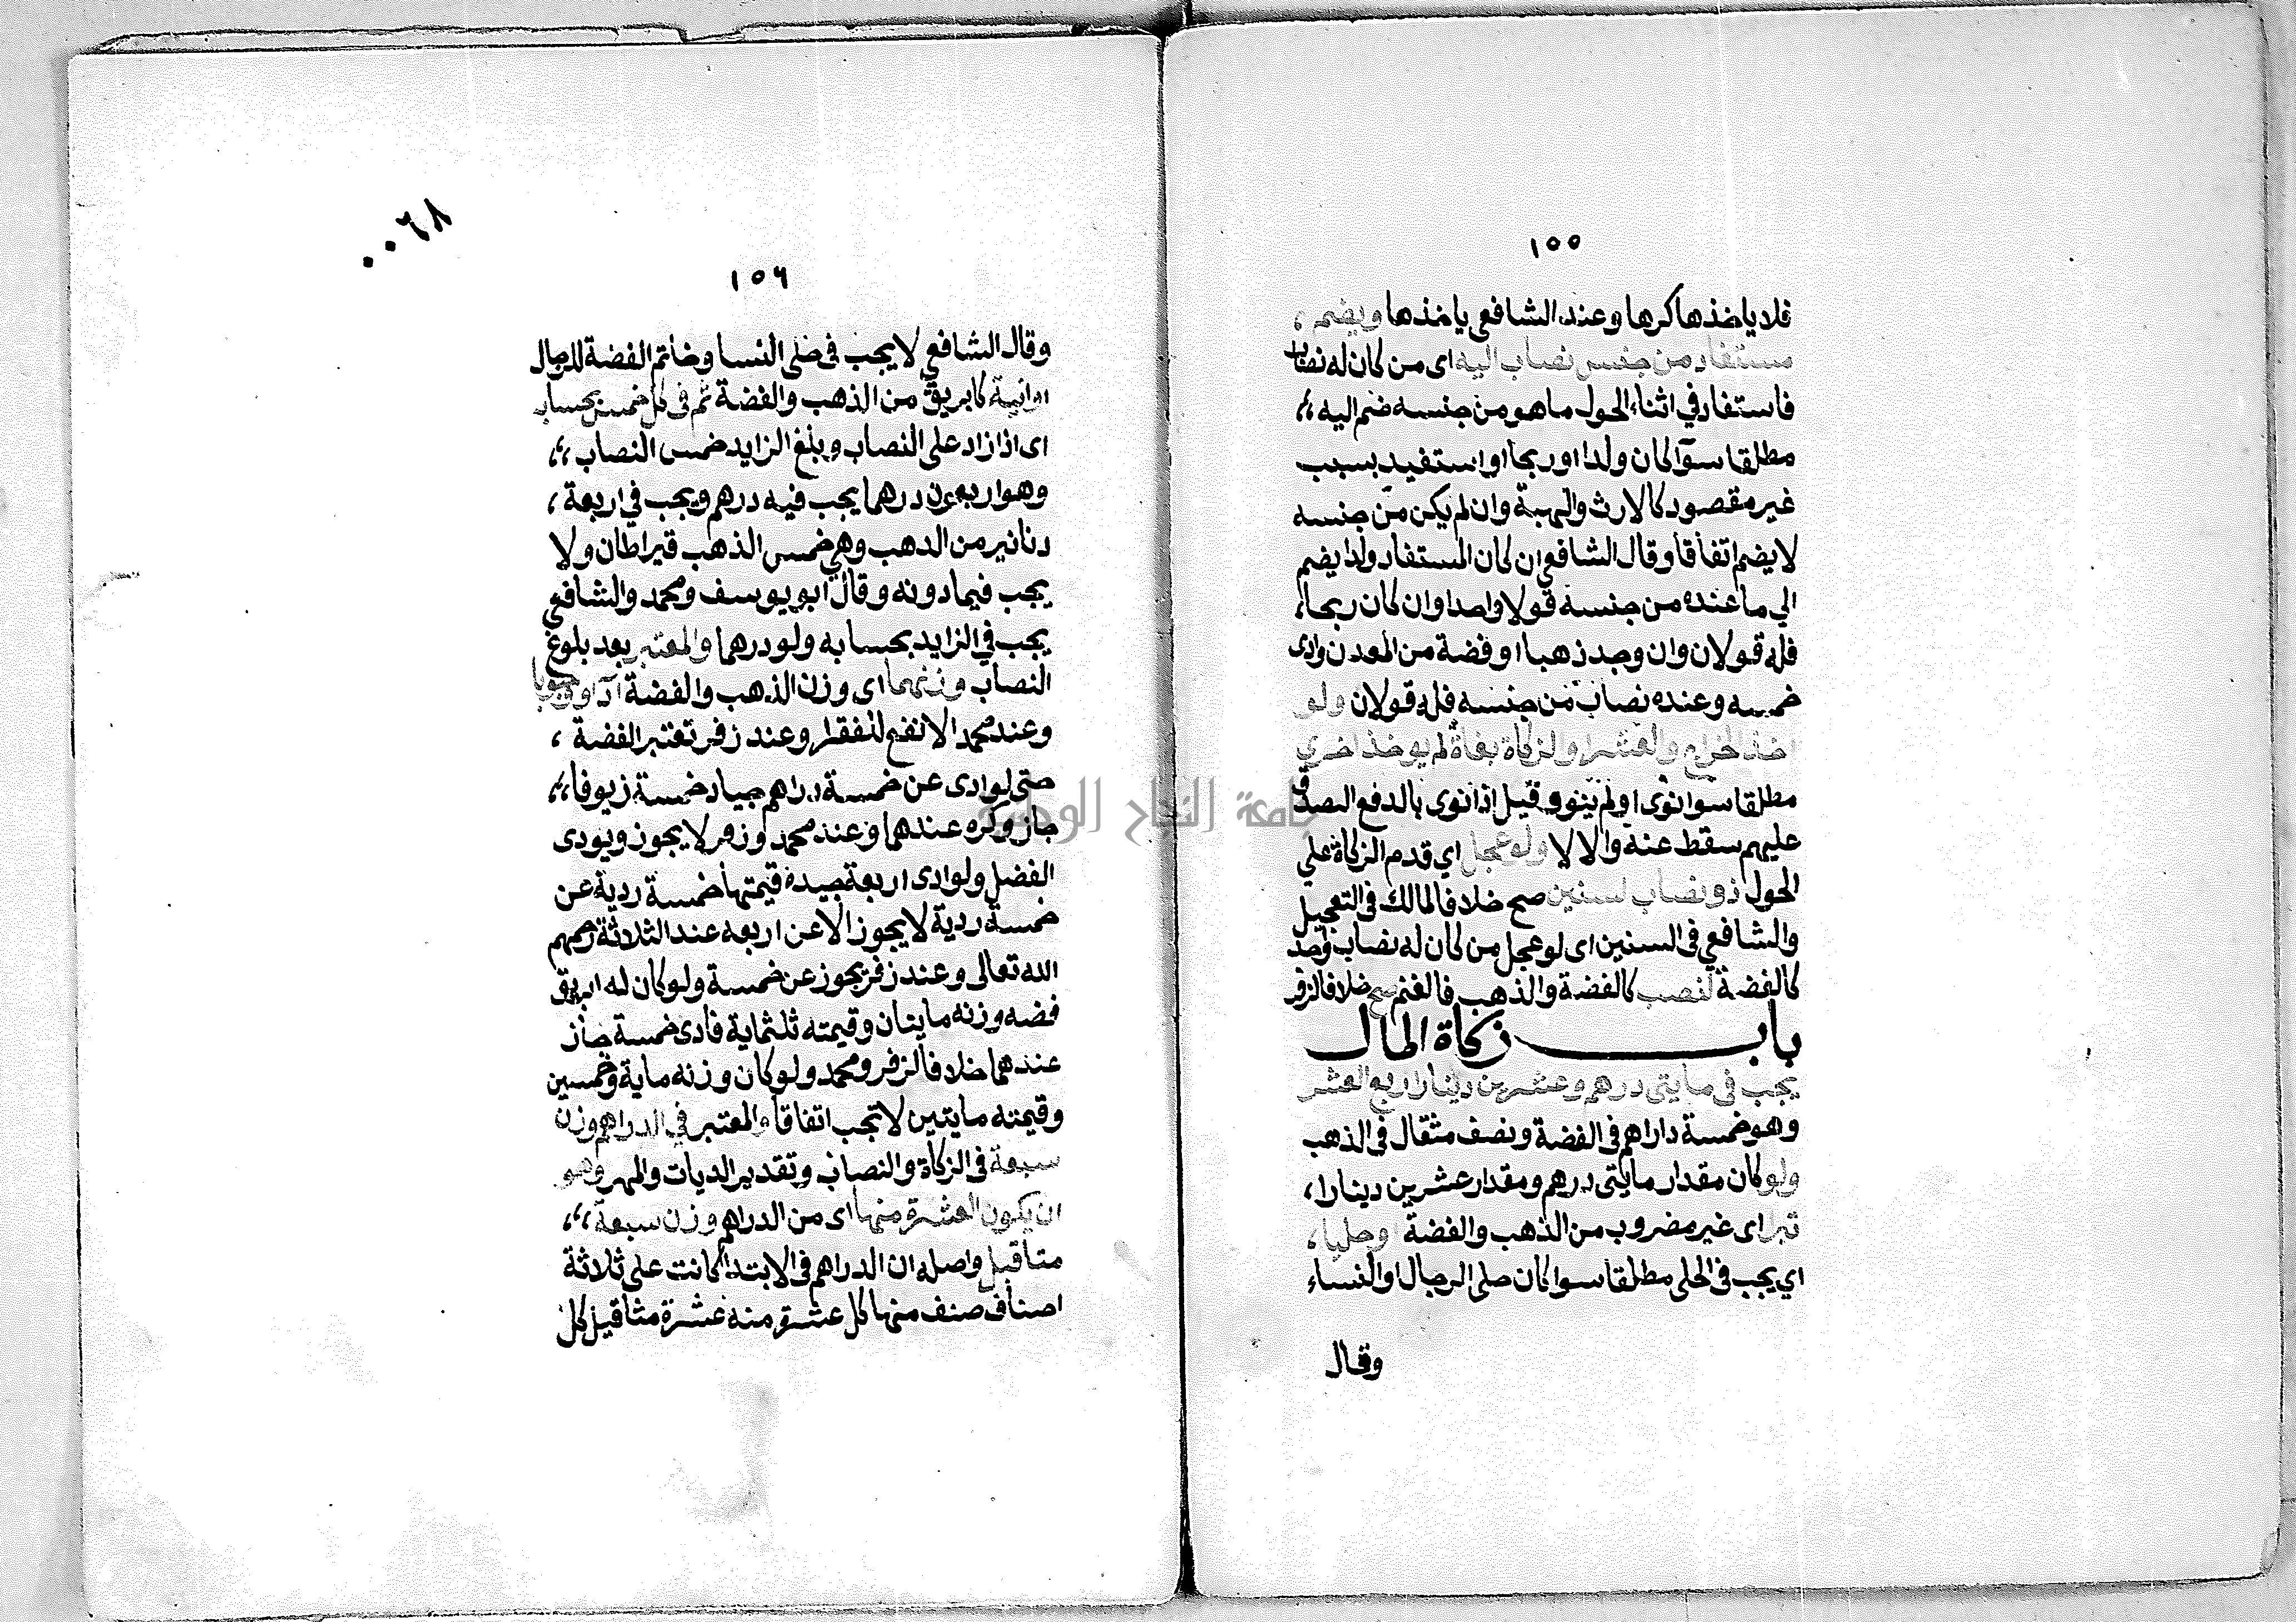 ١٥٥
فلا ياخذها كرها وعند الشافعي ياخذها ويضم،
مستفاد من جنس نصاب اليه اى من كان له نصاب
فاستفاد في اثناء الحول ما هو من جنسه ضم اليه،
مطلقا سوآ كان ولدا او ربحا او استفيد بسبب
غير مقصود كالارث والهبة وان لم يكن من جنسه
لا يضم اتفاقا وقال الشافعي ان كان المستفاد ولدا يضم
الي ما عنده من جنسه قولا واحدا وان كان ربحا،
فله قولان وان وجد ذهبا او فضة من المعدن وادى
خمسه وعنده نصاب من جنسه فله قولان ولو
اخذ الخراج والعشر والزكاة بغاة لم يوخذ اخري
مطلقا سوا نوى او لم ينو وقيل اذا نوى بالدفع التصدق
عليهم سقط عنه والا لا ولو عجل اي قدم الزكاة علي
الحول ذو نصاب لسنين صح خلافا لمالك فى التعجيل
والشافعي فى السنين اى لو عجل من كان له نصاب واحد
كالفضة لنصب كالفضة والذهب فالغنم صح خلافا لزفر
باب زكاة المال
يجب فى مايتى درهم وعشرين دينارا ربع العشر
وهو خمسة داراهم فى الفضة ونصف مثقال فى الذهب
ولو كان مقدار مايتى درهم ومقدار عشرين دينارا،
تبرا اى غير مضروب من الذهب والفضة او حليا،
اي يجب فى الحلى مطلقا سوا كان حلى الرجال او النساء
وقال
٠٠٦٨
١٥٦
وقال الشافعي لا يجب فى حلى النسا وخاتم الفضة للرجال
او انية كابريق من الذهب والفضة ثم فى كل خمس بحسابه
اى اذا زاد على النصاب وبلغ الزايد خمس النصاب،
وهو اربعون درهما يجب فيه درهم ويجب في اربعة،
دنانير من الدهب وهي خمس الذهب قيراطان ولا
يجب فيما دونه وقال ابو يوسف ومحمد والشافعي
يجب في الزايد بحسابه ولو درهما والمعتبر بعد بلوغ
النصاب وزنهما اى وزن الذهب والفضة ادآ ووجوبا
وعند محمد الانفع للفقرا وعند زفر تعتبر الفضة،
حتى لو ادى عن خمسة دراهم جياد خمسة زيوفا،
جاز وكره عندهما وعند محمد وزفر لا يجوز ويودى
الفضل ولو ادى اربعة جيدة قيمتها خمسة ردية عن
خمسة ردية لا يجوز الا عن اربعه عند الثلاثة رحمهم
الله تعالى وعند زفر يجوز عن خمسة ولو كان له ابريق
فضه وزنه مايتان وقيمته ثلثماية فادى خمسة جاز
عندهما خلافا لزفر ومحمد ولو كان وزنه ماية وخمسين
وقيمته مايتين لا تجب اتفاقا والمعتبر في الدراهم وزن
سبعة فى الزكاة والنصاب وتقدير الديات والمهر وهو
ان يكون العشرة منها اى من الدراهم وزن سبعة،
مثاقيل واصله ان الدراهم فى الابتدا كانت على ثلاثة
اصناف صنف منها كل عشرة منه عشرة مثاقيل كل
جامعة النجاح الوطنية